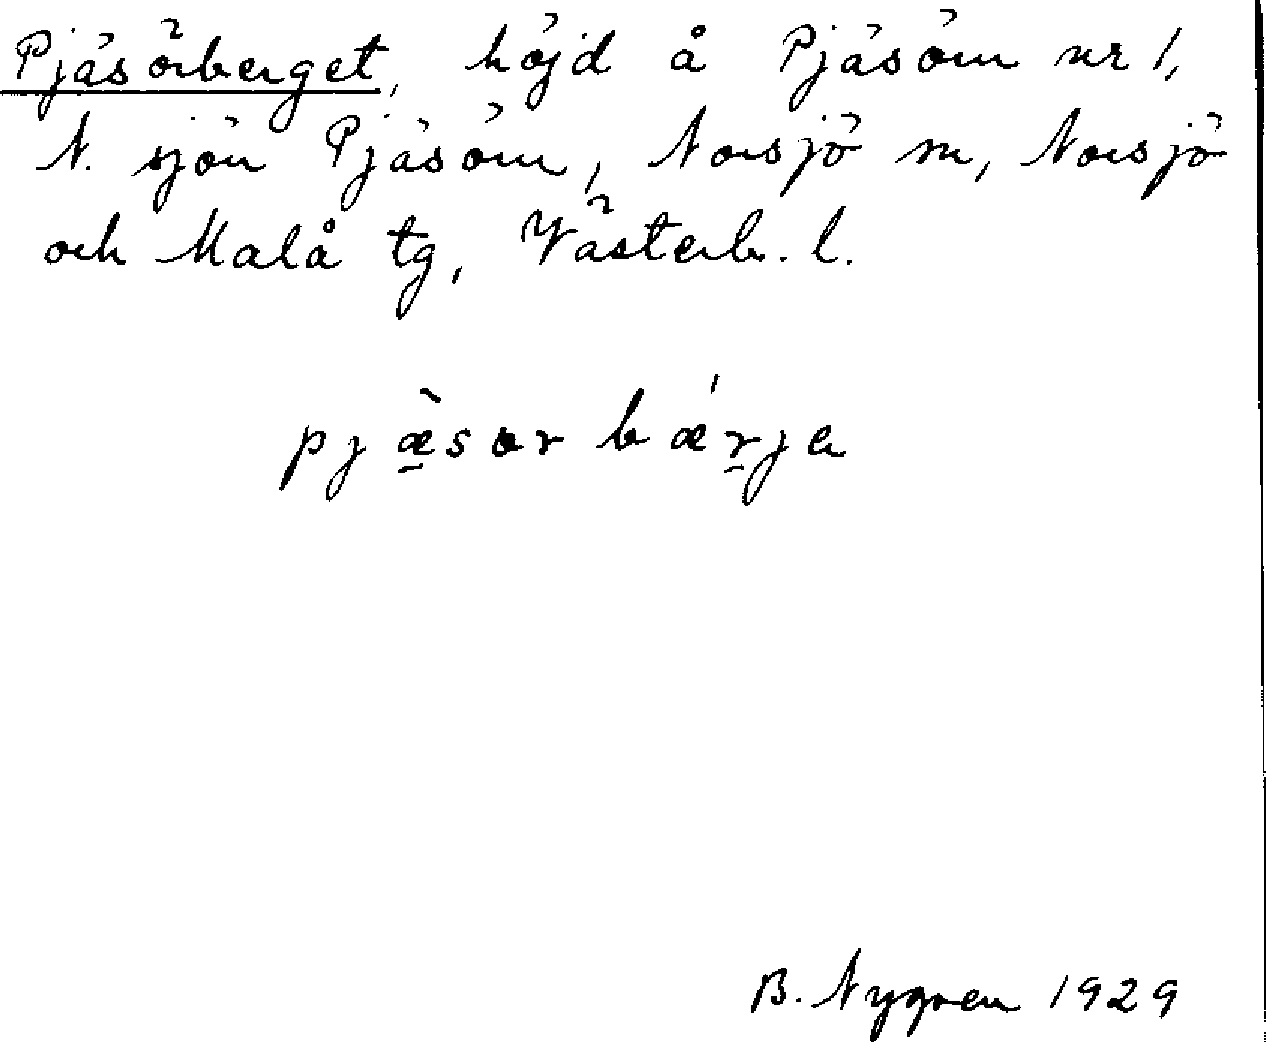 Pjäsörberget, höjd å Pjäsörn nr 1,
N. sjön Pjäsörn, Norsjö sn, Norsjö
och Malå tg, Västerb. l.
pjæ̠̀sɷr bǽr̠ja
B. Nygren 1929